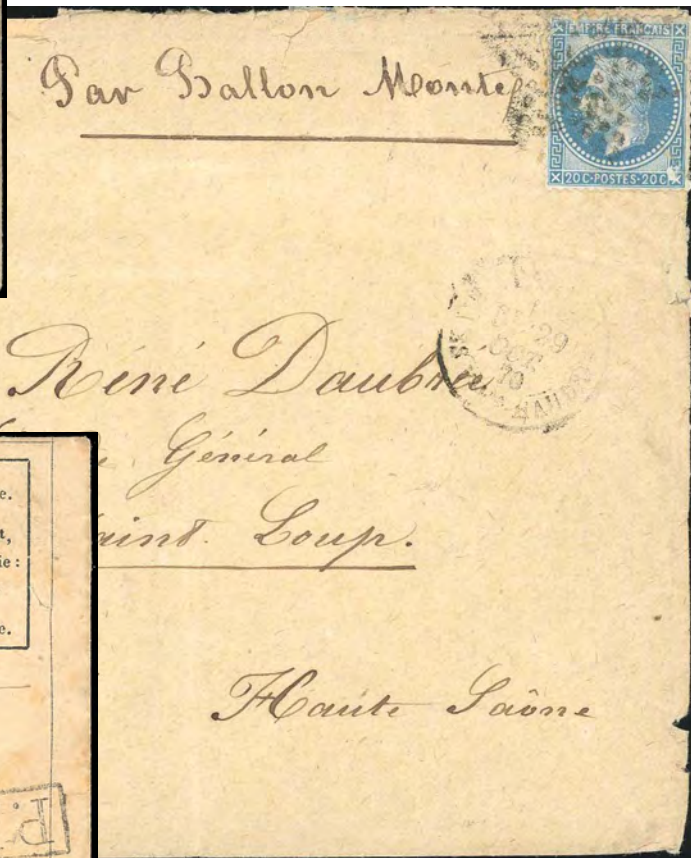 Par Ballon Monté
EMPIRE FRANÇAIS
20 C·POSTES·20 C
29
OCT
70
Réné Daubra
Général
aint Loup.
Haute Saône
e.
t,
ie :
e.
P.